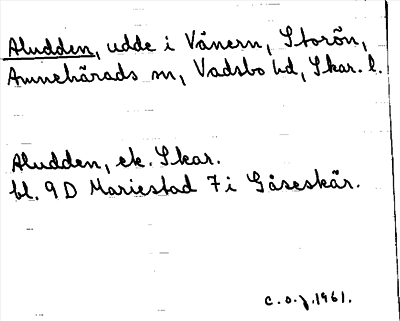 Aludden, udde i Vänern, Storön,
Amnehärads sn, Vadsbo hd, Skar. l.
Aludden, ek. Skar.
bl. 9D Mariestad 7i Gåseskär.
c.o.j. 1961.